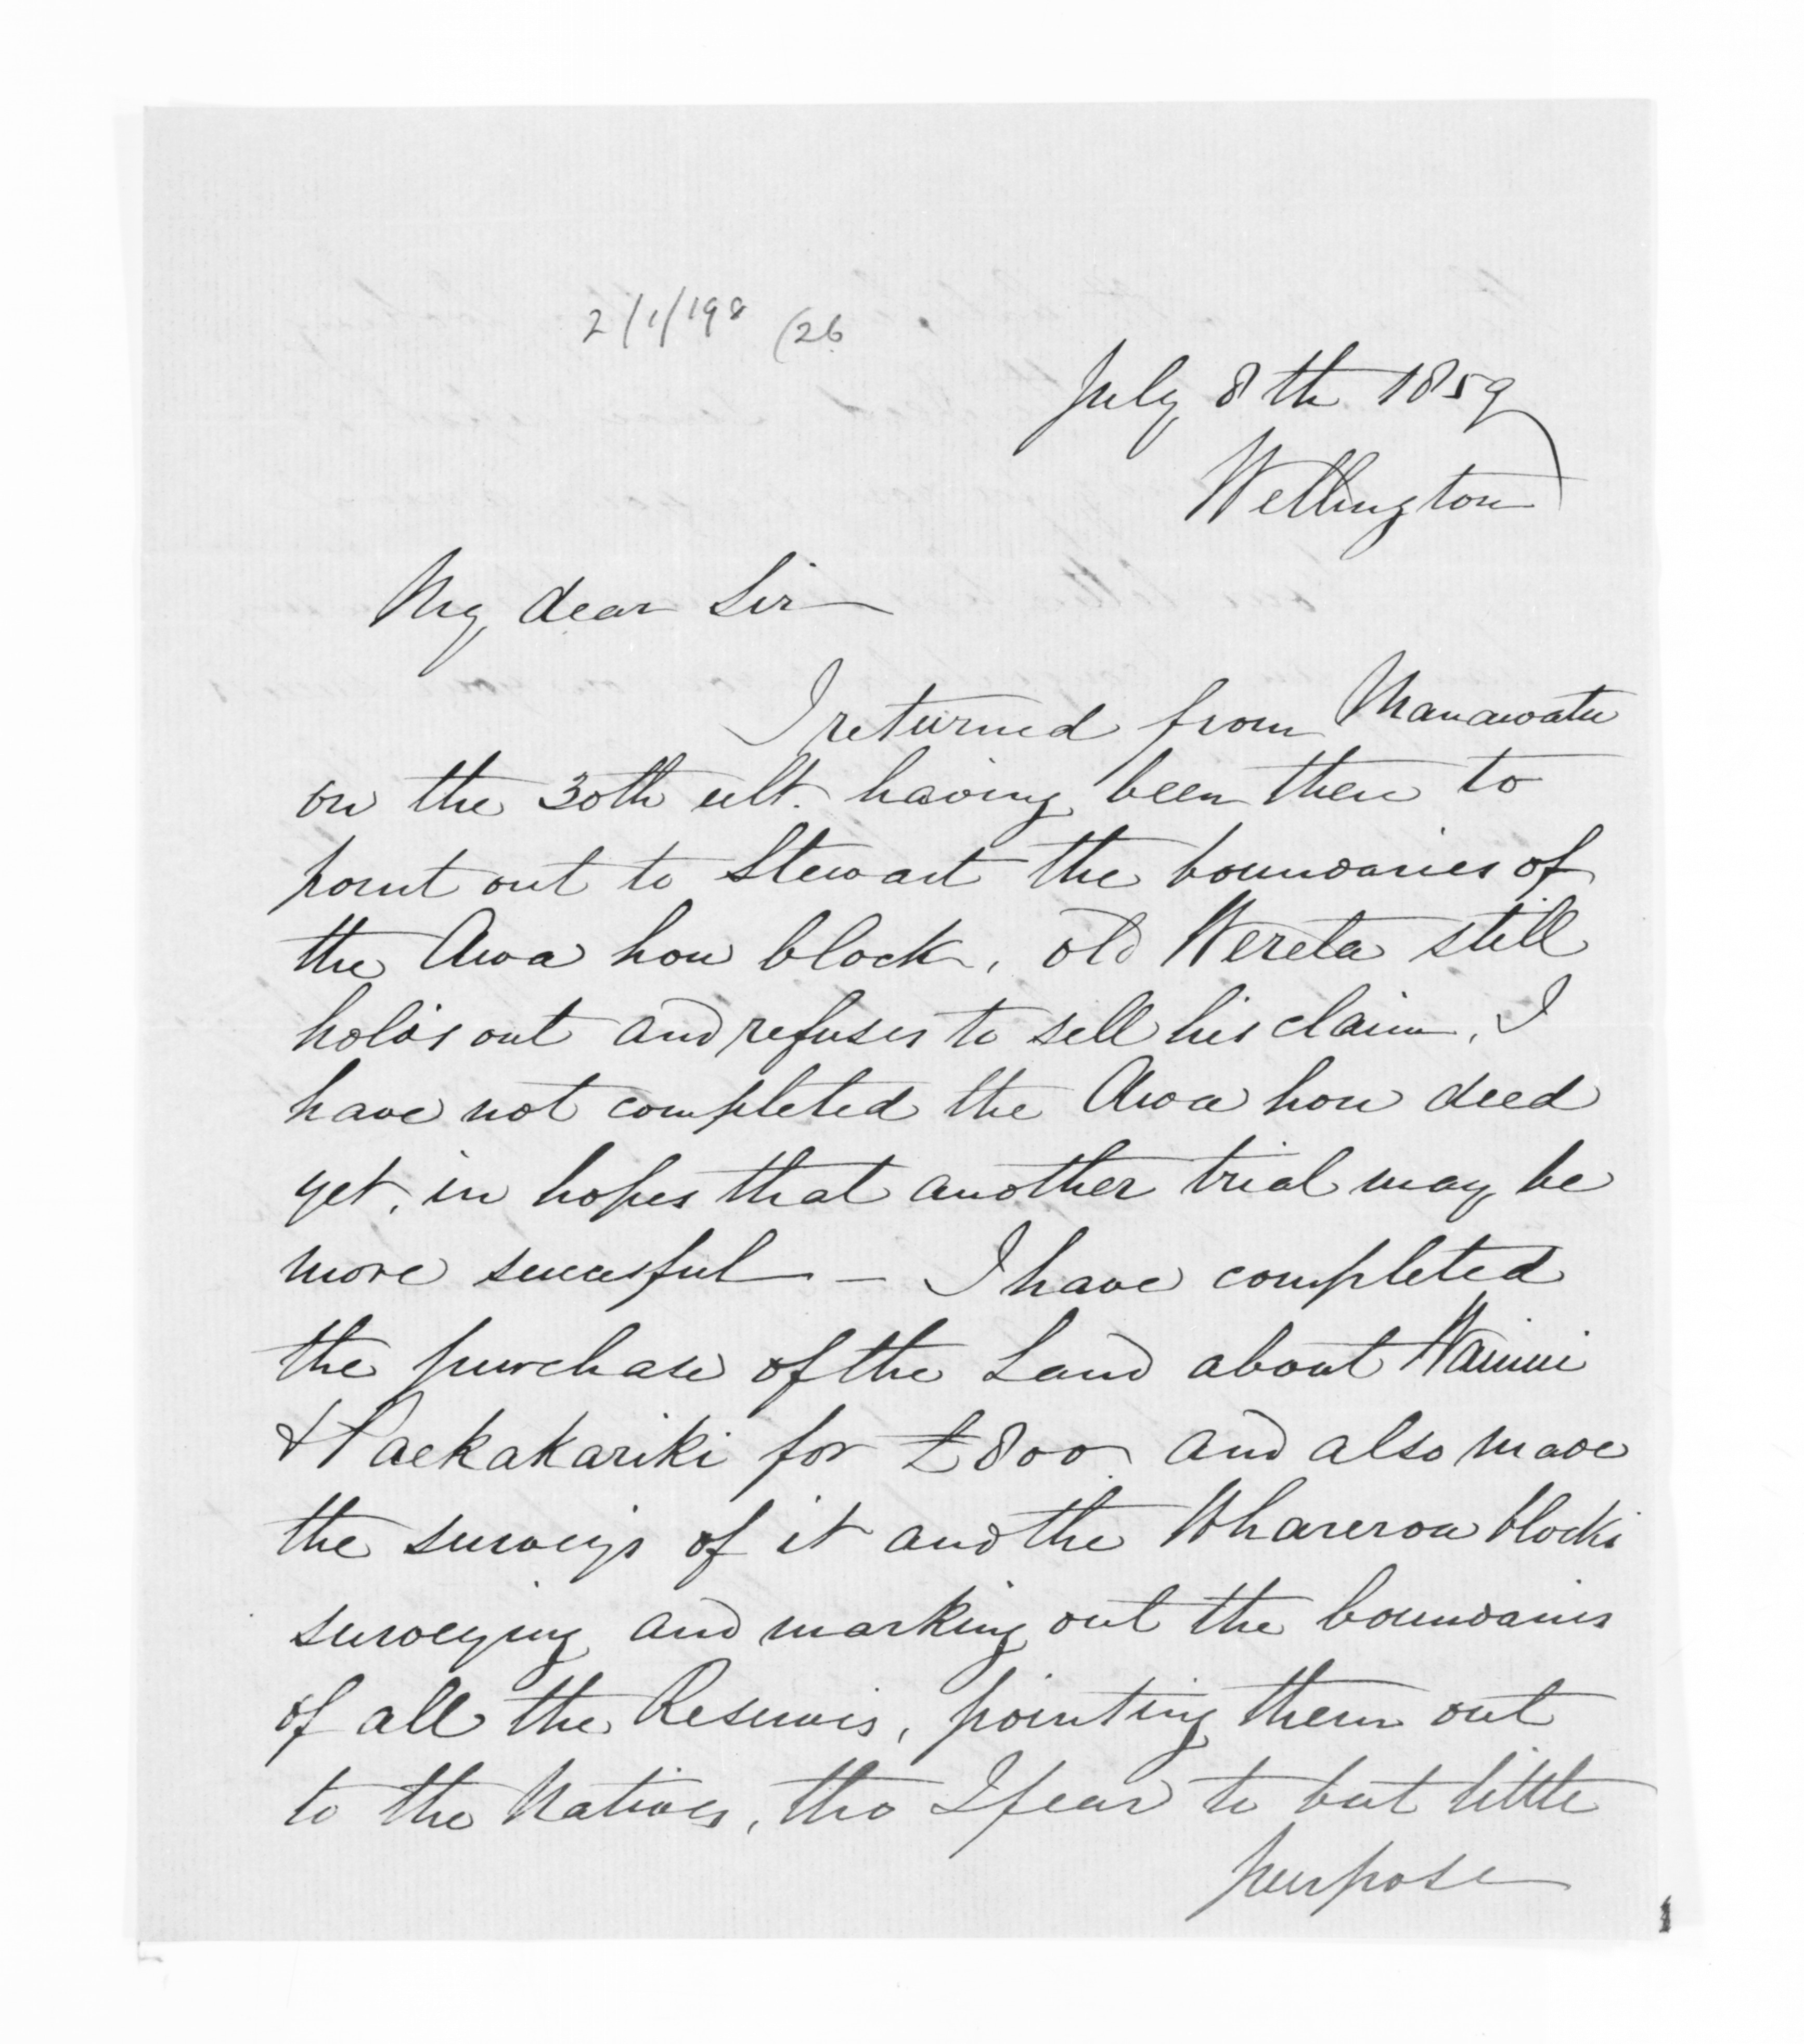 2/1/198 (26
July 8th 1859
Wellington
My dear Sir
I returned from Manawatu
on the 30th ult. having been there to
point out to Stewart the boundaries of
the Awa hou block, old Wereta still
holds out and refuses to sell his claim, I
have not completed the Awa hou deed
yet, in hopes that another trial may be
more sucessful - I have completed
the purchase of the Land about Wainui
& Paekakariki for £800 and also made
the surveys of it and the Whareroa blocks
surveying and marking out the boundaries
of all the Reserves, pointing them out
to the Natives, tho I fear to but little
purpose